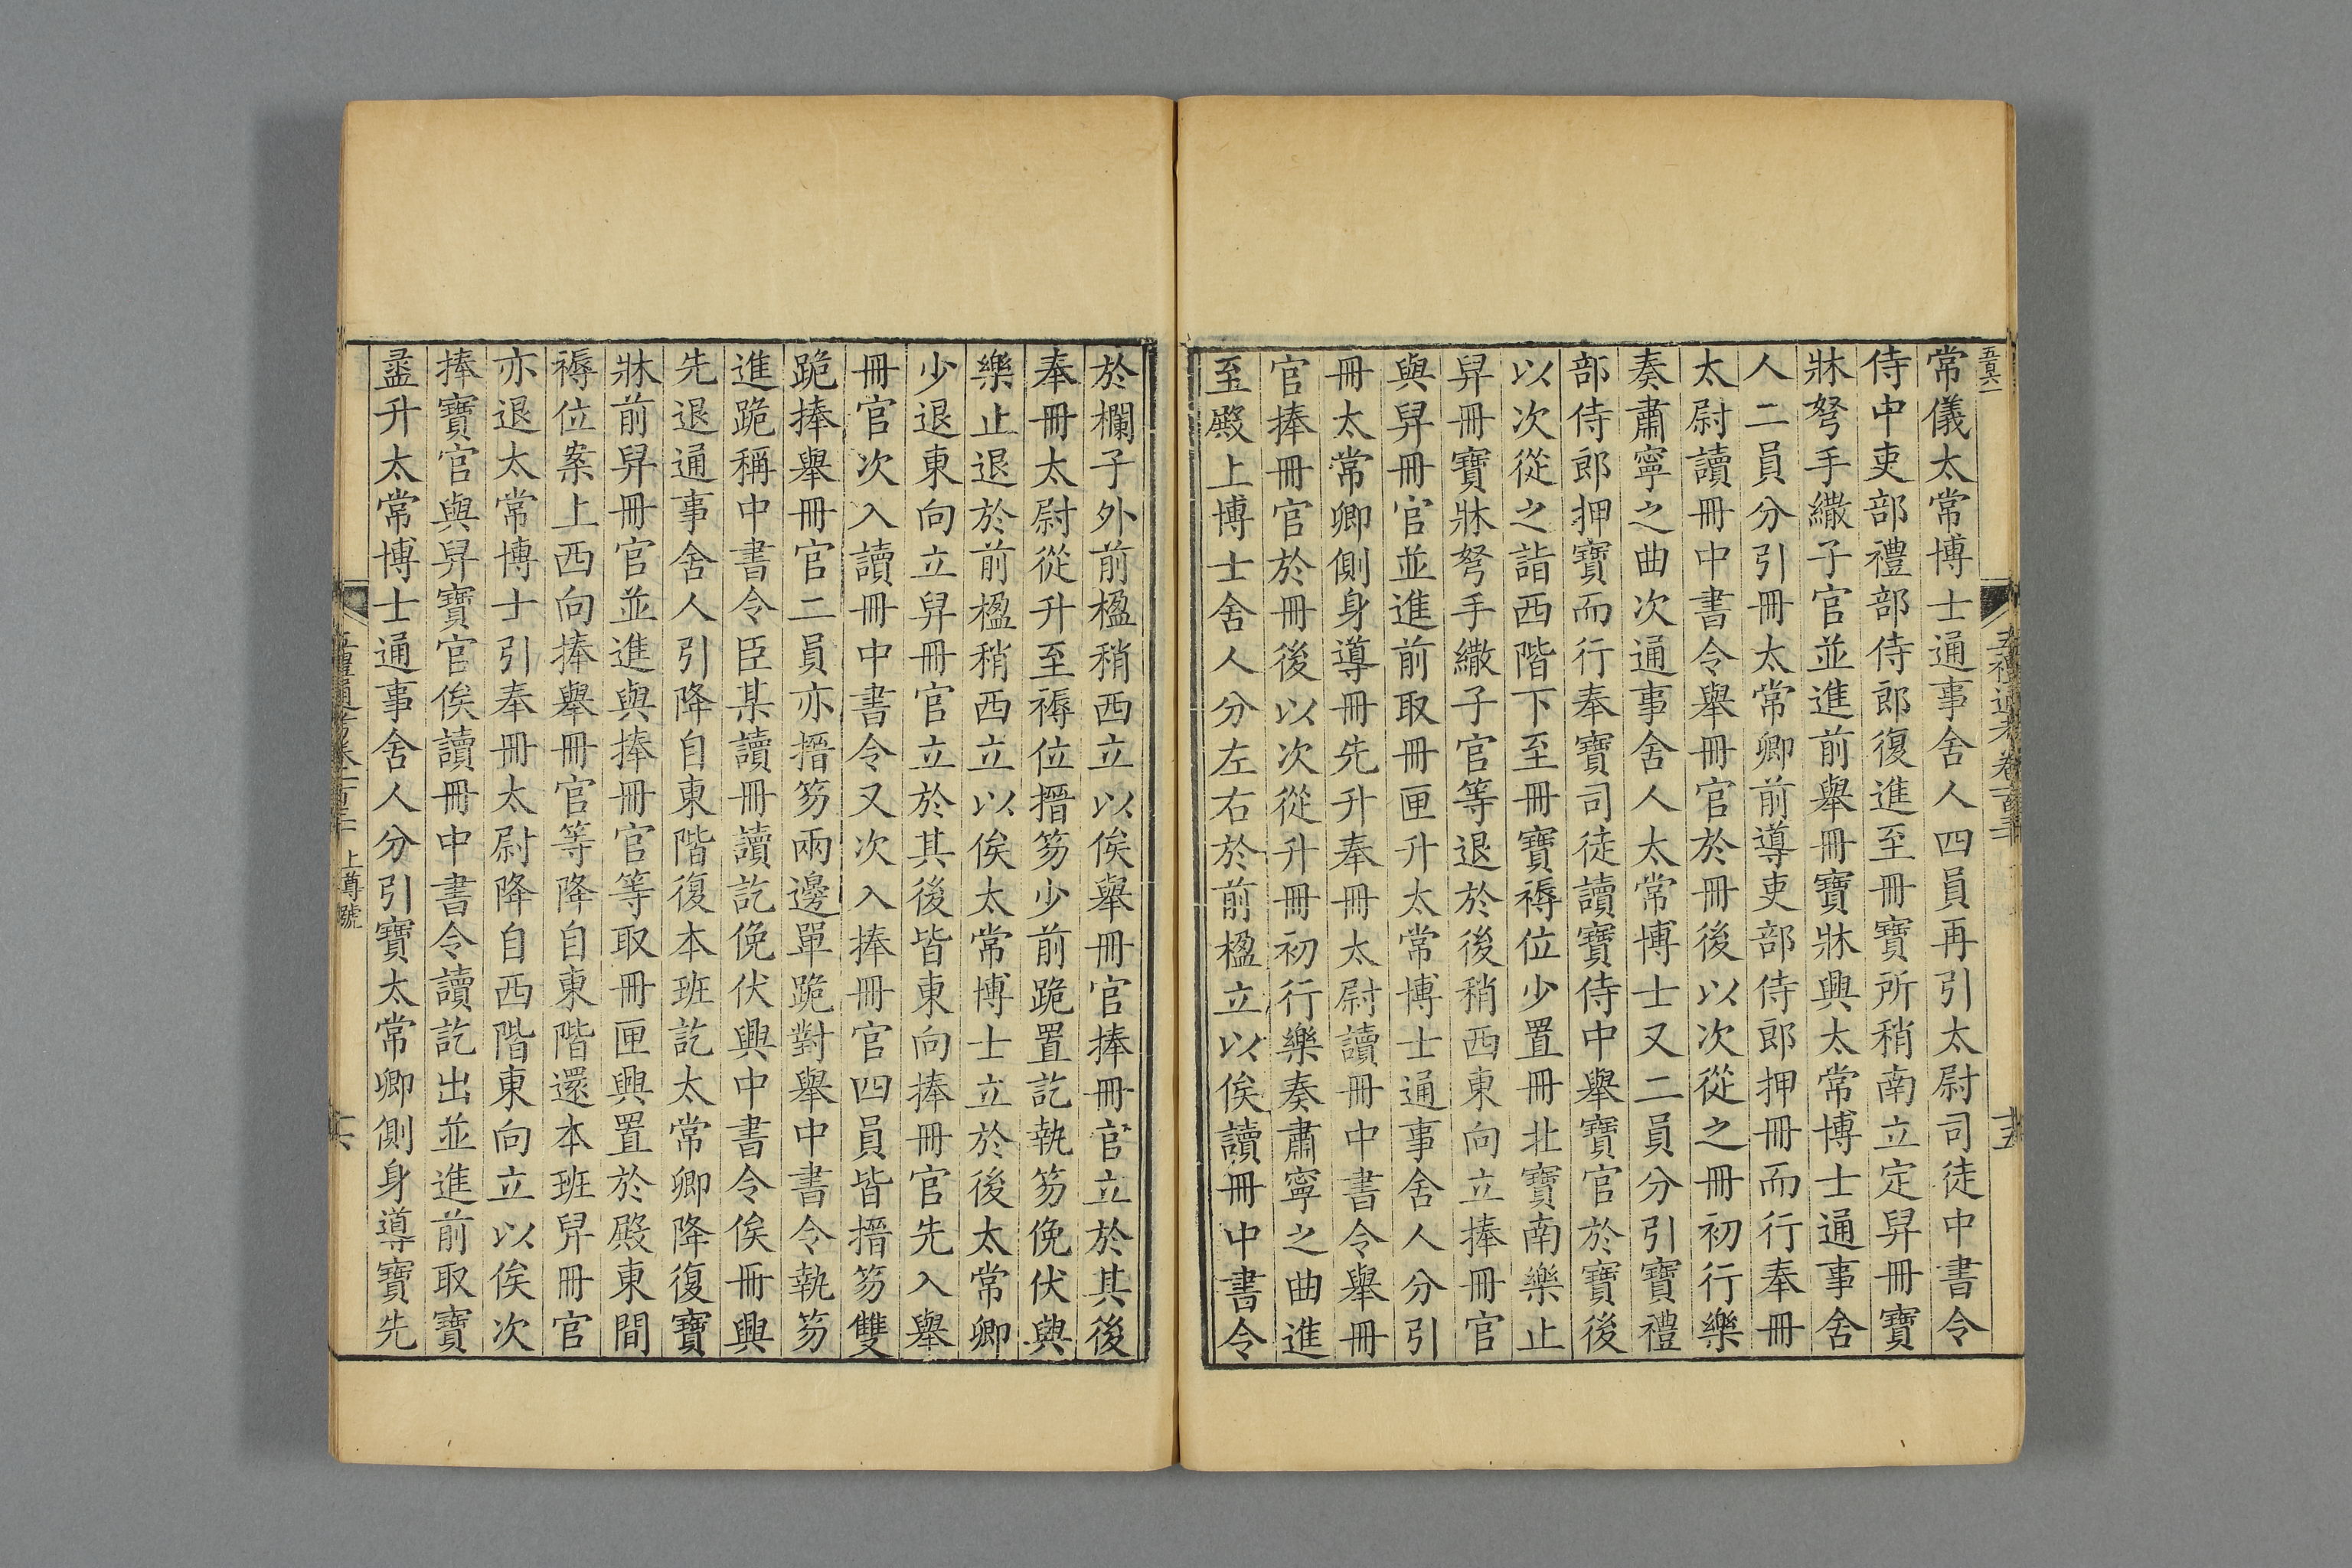 常儀太常博士通事舍人四員再引太尉司徒中書令
侍中吏部禮部侍郎復進至冊寶所稍南立定舁冊寶
牀弩手繖子官並進前舉冊寶牀興太常博士通事舍
人二員分引冊太常卿前導吏部侍郎押冊而行奉冊
太尉讀冊中書令舉冊官於冊後以次從之冊初行樂
奏肅寧之曲次通事舍人太常博士又二員分引寶禮
部侍郎押寶而行奉寶司徒讀寶侍中舉寶官於寶後
以次從之詣西階下至冊寶褥位少置冊北寶南樂止
舁冊寶牀弩手繖子官等退於後稍西東向立捧冊官
與舁冊官並進前取冊匣升太常博士通事舍人分引
冊太常卿側身導冊先升奉冊太尉讀冊中書令舉冊
官捧冊官於冊後以次從升冊初行樂奏肅寧之曲進
至殿上博士舍人分左右於前楹立以俟讀冊中書令
於欄子外前楹稍西立以俟舉冊官捧冊官立於其後
奉冊太尉從升至褥位搢笏少前跪置訖執笏俛伏興
樂止退於前楹稍西立以俟太常博士立於後太常卿
少退東向立舁冊官立於其後皆東向捧冊官先入舉
冊官次入讀冊中書令又次入捧冊官四員皆搢笏雙
跪捧舉冊官二員亦搢笏兩邊單跪對舉中書令執笏
進跪稱中書令臣某讀冊讀訖俛伏興中書令俟冊興
先退通事舍人引降自東階復本班訖太常卿降復寶
牀前舁冊官並進與捧冊官等取冊匣興置於殿東間
褥位案上西向捧舉冊官等降自東階還本班舁冊官
亦退太常博士引奉冊太尉降自西階東向立以俟次
捧寶官與舁寶官俟讀冊中書令讀訖出並進前取寶
盝升太常博士通事舍人分引寶太常卿側身導寶先
上尊號